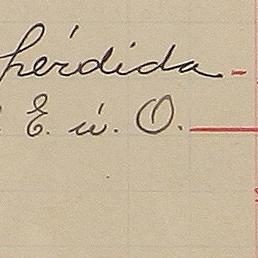 pérdida -
E. ú. O.